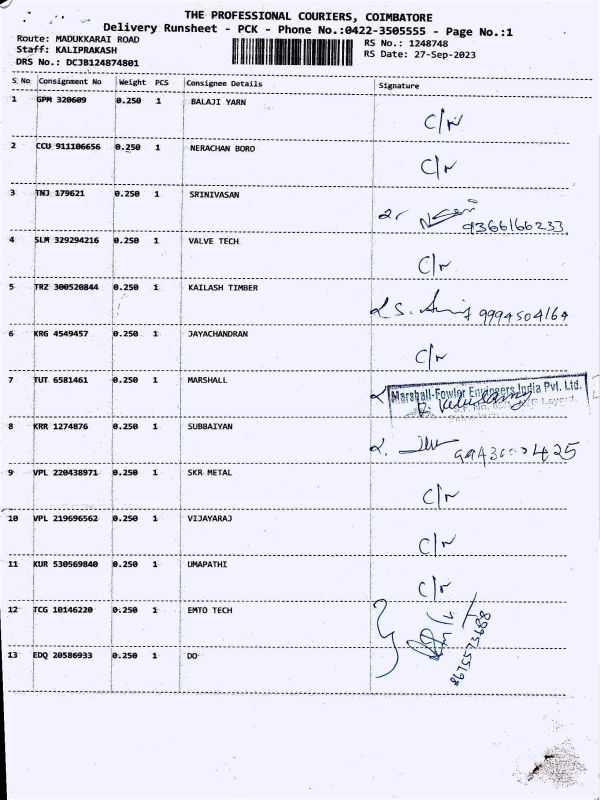 THE PROFESSIONAL COURIERS, COIMBATORE
Delivery Runsheet - PCK - Phone No.:0422-3505555 - Page No.:1
Route: MADUKKARAI ROAD
RS No.: 1248748
Staff: KALIPRAKASH
RS Date: 27-Sep-2023
DRS No.: DCJB124874801
S No Consignment No Weight PCS Consignee Details Signature
1 GPM 320609 0.250 1 BALAJI YARN C/r
2 CCU 911106656 0.250 1 NERACHAN BORO C/r
3 TNJ 179621 0.250 1 SRINIVASAN 9366166233
4 SLM 329294216 0.250 1 VALVE TECH C/r
5 TRZ 300520844 0.250 1 KAILASH TIMBER 9994504164
6 KRG 4549457 0.250 1 JAYACHANDRAN C/r
7 TUT 6581461 0.250 1 MARSHALL Marshall-Fowler Engineers India Pvt. Ltd.
8 KRR 1274876 0.250 1 SUBBAIYAN
9 VPL 220438971 0.250 1 SKR METAL C/r
10 VPL 219696562 0.250 1 VIJAYARAJ C/r
11 KUR 530569840 0.250 1 UMAPATHI C/r
12 TCG 10146220 0.250 1 EMTO TECH
13 EDQ 20586933 0.250 1 DO 8675573688